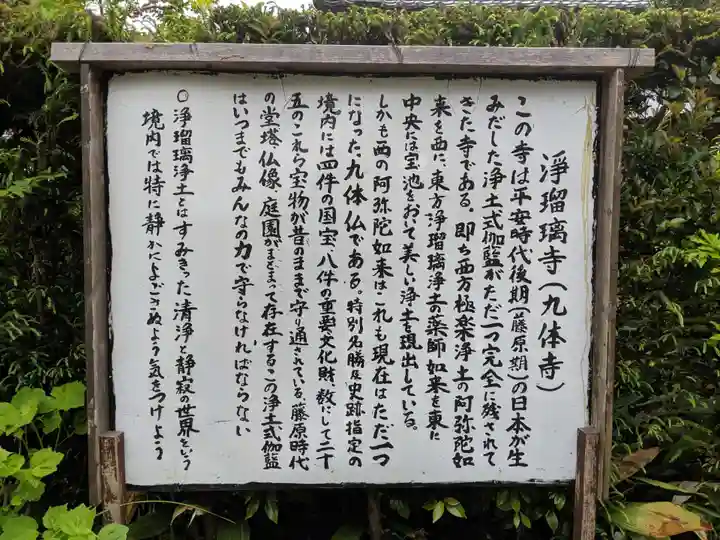 浄瑠璃寺(九体寺)
この寺は平安時代後期(藤原期)の日本が生
みだした浄土式伽藍がただ一つ完全に残されて
きた寺である。即ち西方極楽浄土の阿弥陀如
来を西に、東方浄瑠璃浄土の薬師如来を東に
中央には宝池をおいて美しい浄土を現出している。
しかも西の阿弥陀如来はこれも現在はただ一つ
になった九体仏である。特別名勝及史跡指定の
境内には四件の国宝、八件の重要文化財、数にして二十
五のこれら宝物が昔のままで守り通されている。藤原時代
の堂塔、仏像、庭園がまとまって存在するこの浄土式伽藍
はいつまでもみんなの力で守らなければならない
○浄瑠璃浄土とはすみきった清浄と静寂の世界という
境内では特に静かによごさぬよう気をつけよう